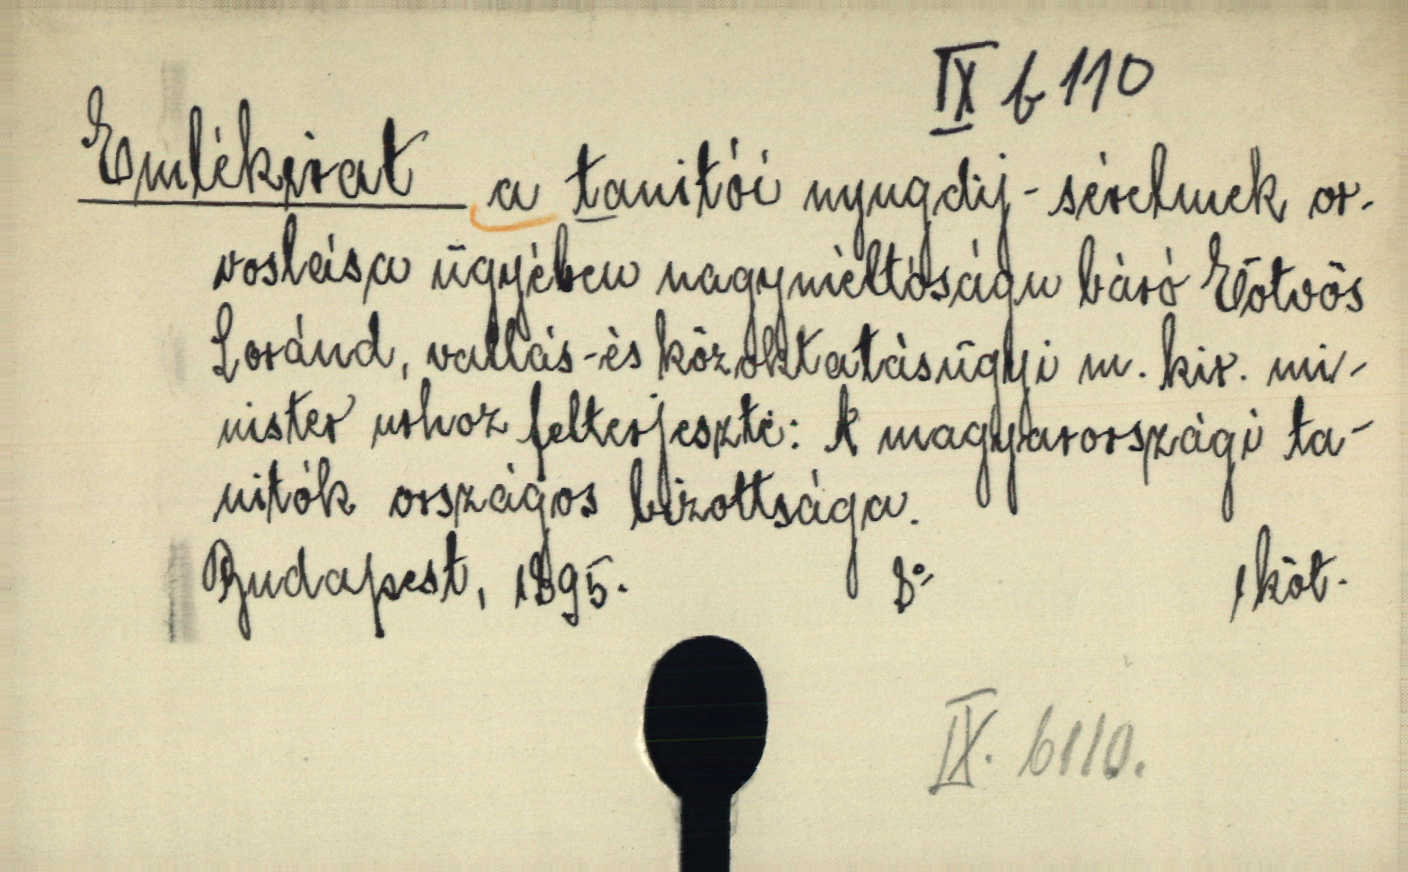 IX b 110
Emlékirat a tanitói nyugdij-sérelmek or-
voslása ügyében nagyméltóságu báró Eötvös
Loránd, vallás-és közoktatásügyi m. kir. mi-
nister urhoz felterjeszté: A magyarországi ta-
nitók országos bizottsága.
Budapest, 1895. 8° 1 köt.
IX. b110.